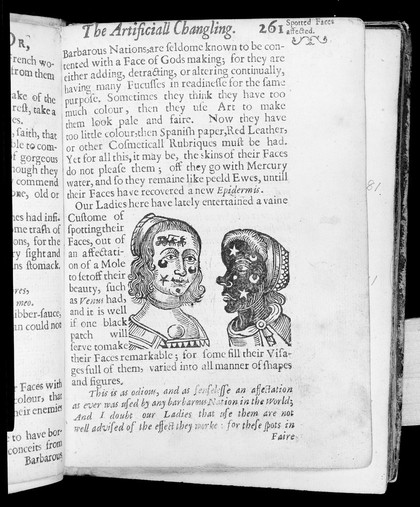 OR,
rench wo-
from them
ake of the
rest, take a
es.
s faith, that
ble to com-
f gorgeous
nough they
commend
one, old or
nes had infi.
me trash of
ons, for the
ry sight and
ns stomack.
meo.
ibber-sauce,
an could not
r Faces with
colours, that
heir enemies
to have bor-
conceits from
Barbarous
The Artificiall Changling. 261
Spotted Faces
affected.
Barbarous Nations, are seldome known to be con-
tented with a Face of Gods making; for they are
either adding, detracting, or altering continually,
having many Fucusses in readinesse for the same
purpose. Sometimes they think they have too
much colour, then they use Art to make
them look pale and faire. Now they have
too little colour, then Spanish paper, Red Leather,
or other Cosmeticall Rubriques must be had.
Yet for all this, it may be, the skins of their Faces
do not please them; off they go with Mercury
water, and so they remaine like peeld Ewes, untill
their Faces have recovered a new Epidermis.
Our Ladies here have lately entertained a vaine
Custome of
spotting their
Faces, out of
an affectati-
on of a Mole
to set off their
beauty, such
as Venus had,
and it is well
if one black
patch will
serve to make
their Faces remarkable; for some fill their Visa-
ges full of them, varied into all manner of shapes
and figures.
This is as odious, and as senselesse an affectation
as ever was used by any barbarous Nation in the World;
And I doubt our Ladies that use them are not
well advised of the effect they worke: for these spots in
Faire
81.